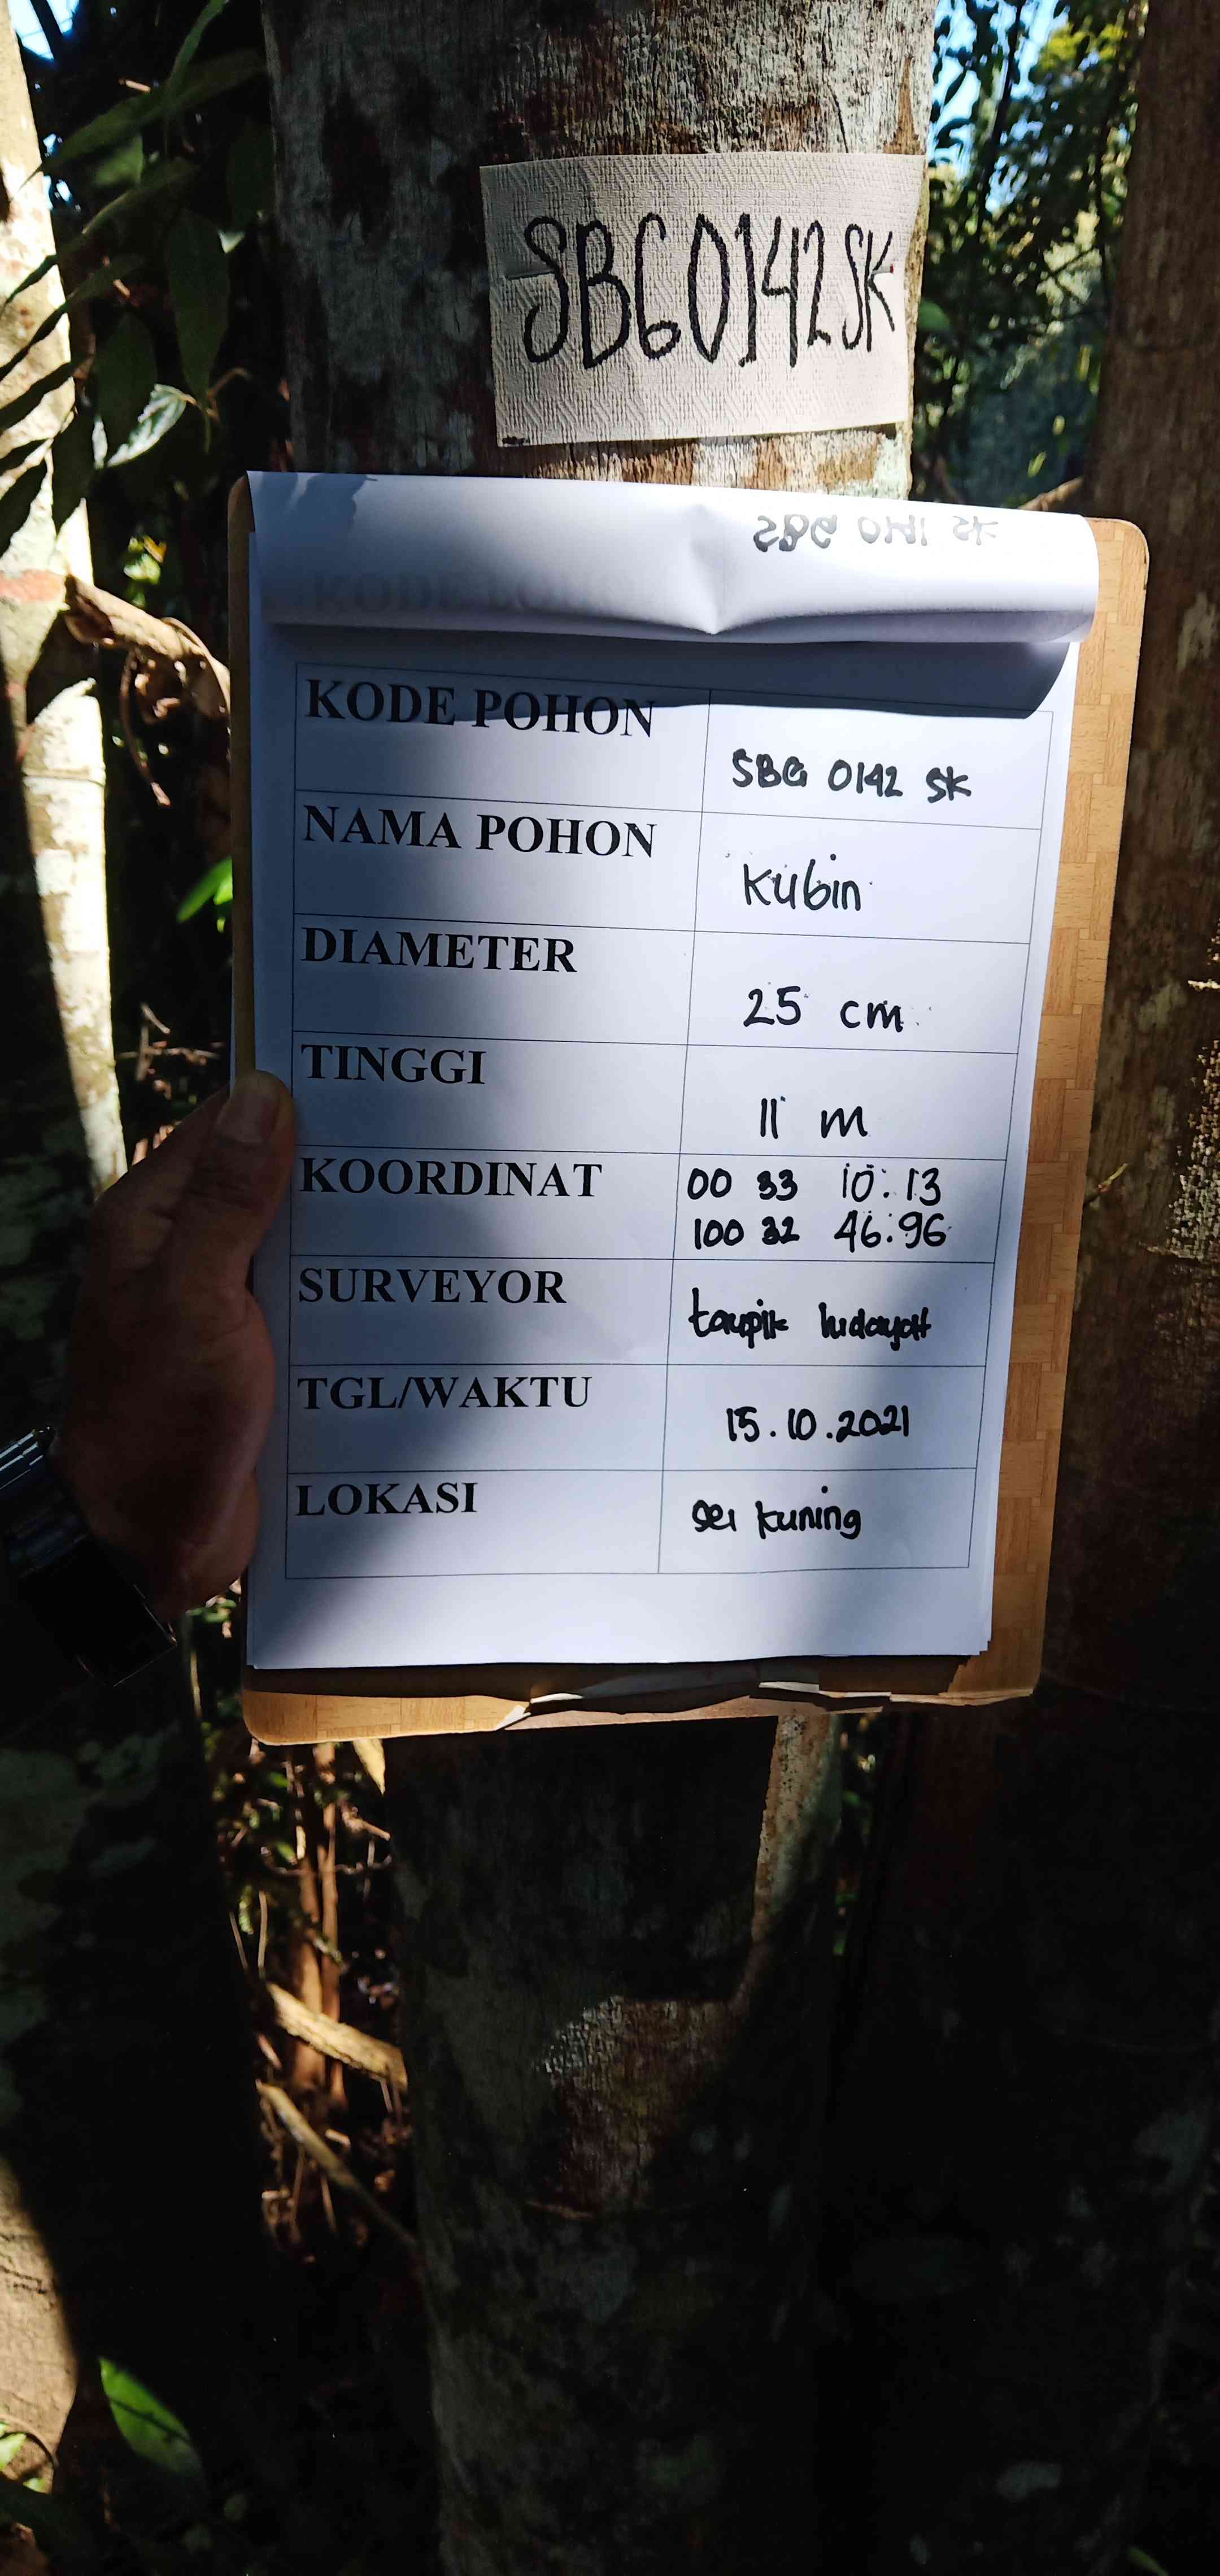 SBG0142SK
SBG 0141 SK
KODE POHON
SBG 0142 SK
NAMA POHON
Kubin
DIAMETER
25 cm
TINGGI
11 m
KOORDINAT
00 33 10.13
100 32 46.96
SURVEYOR
taupik hidayat
TGL/WAKTU
15.10.2021
LOKASI
sei kuning